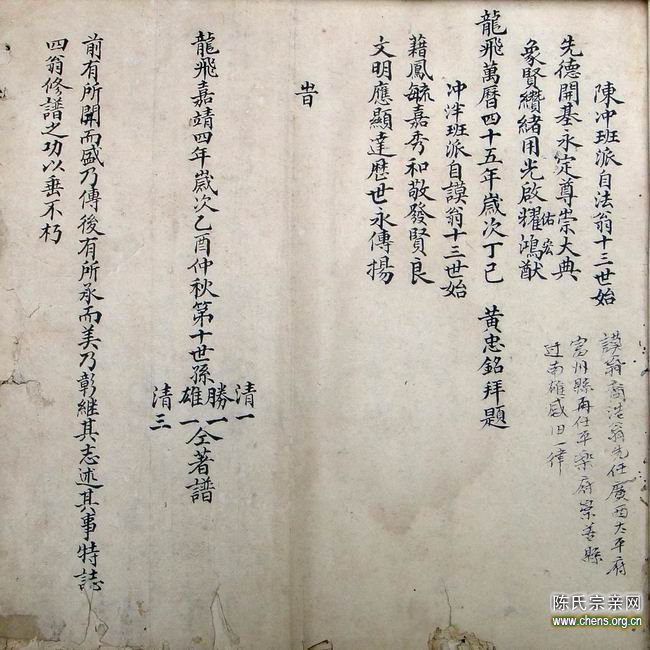 陳冲班派自法翁十三世始
先德開基永定尊崇大典
佑宏
象賢纘緒用光啟耀鴻猷
謨翁裔浩翁先任廣西太平府
富川縣再任平樂府崇善縣
过南雄感旧一律
龍飛萬曆四十五年歲次丁巳 黃忠銘拜題
冲泮班派自謨翁十三世始
藉鳳毓嘉秀和敬發賢良
文明應顯達歷世永傳揚
旹
龍飛嘉靖四年歲次乙酉仲秋第十世孫
清一
勝一
雄一
清三
仝著譜
前有所開而盛乃傳後有所承而美乃彰継其志述其事特誌
四翁修譜之功以垂不朽
陈氏宗亲网
www.chens.org.cn